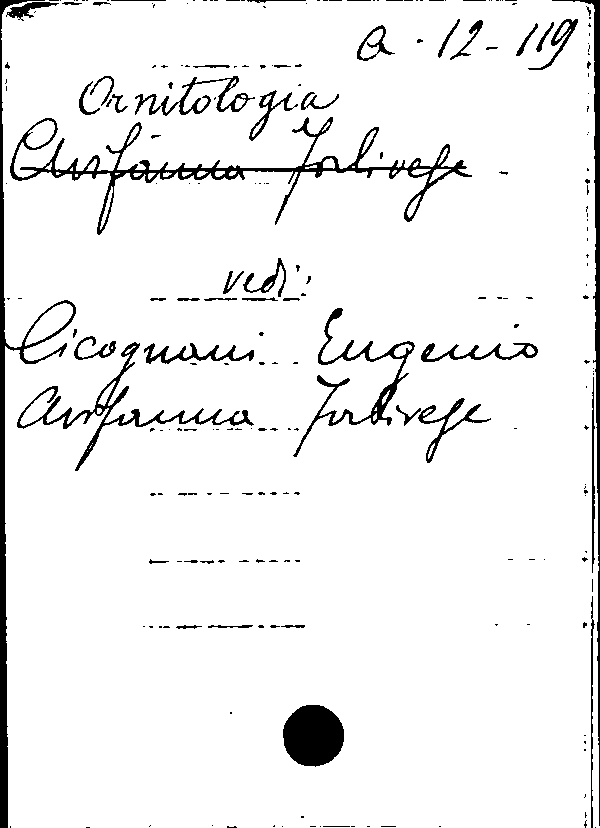 a - 12 - 119
Ornitologia
Avifauna Forlivese
vedi:
Cicognani Eugenio
Avifauna Forlivese